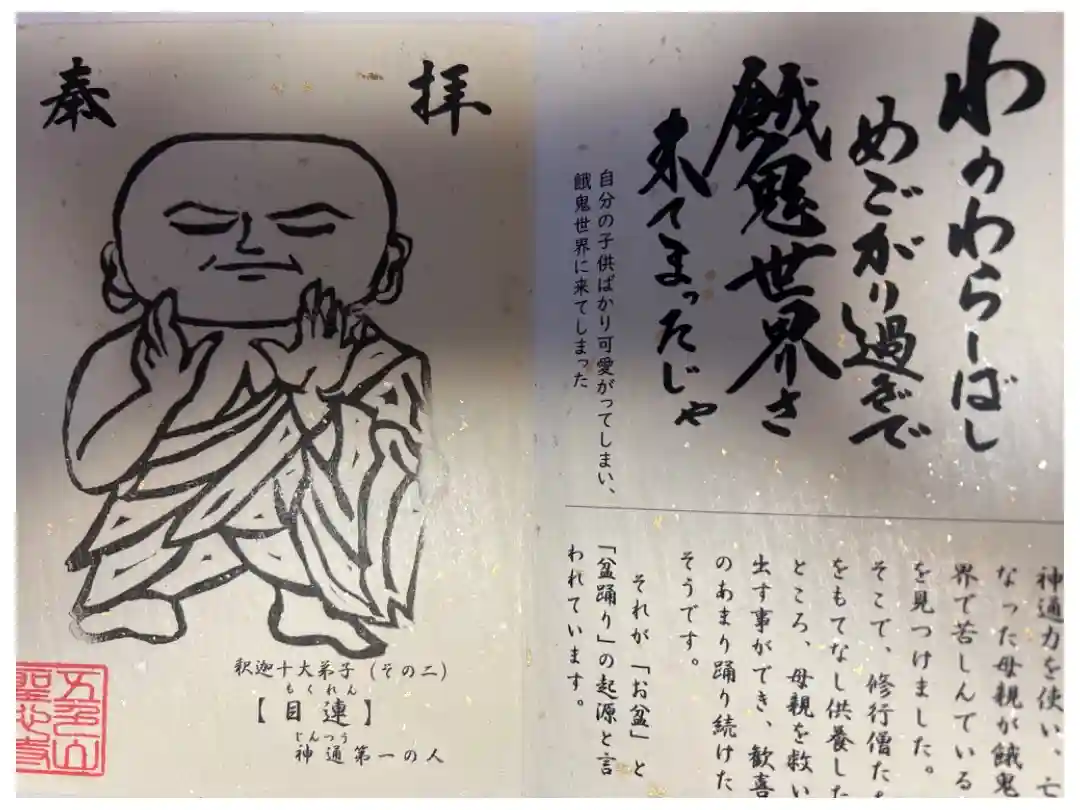 奉拝
釈迦十大弟子(その二)
もくれん
【目連】
じんつう
神通第一の人
わのわらーばし
めごがり過ぎで
餓鬼世界さ
来てまったじゃ
自分の子供ばかり可愛がってしまい、
餓鬼世界に来てしまった
神通力を使い、亡
なった母親が餓鬼
界で苦しんでいる
を見つけました。
そこで、修行僧た
をもてなし供養した
ところ、母親を救い
出す事ができ、歓喜
のあまり踊り続けた
そうです。
それが「お盆」と
「盆踊り」の起源と言
われています。